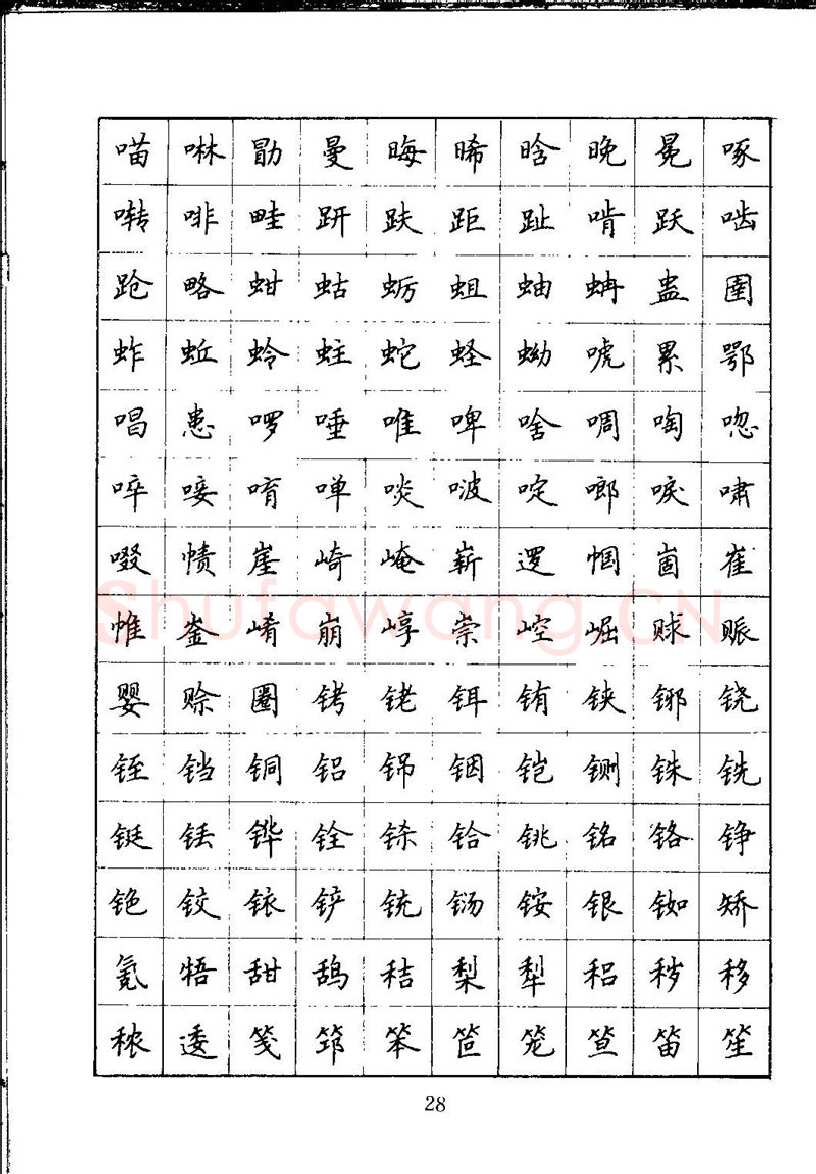 喵 啉 勖 曼 晦 晞 晗 晚 冕 啄
啭 啡 畦 趼 趺 距 趾 啃 跃 啮
跄 略 蚶 蛄 蛎 蛆 蚰 蚺 蛊 圉
蚱 蚯 蛉 蛀 蛇 蛏 蚴 唬 累 鄂
唱 患 啰 唾 唯 啤 啥 啁 啕 唿
啐 唼 唷 啴 啖 啵 啶 啷 唳 啸
啜 帻 崖 崎 崦 崭 逻 帼 崮 崔
帷 崟 崤 崩 崞 崇 崆 崛 赇 赈
婴 赊 圈 铐 铑 铒 铕 铗 铘 铙
铚 铛 铜 铝 铞 铟 铠 铡 铢 铣
铤 铥 铧 铨 铩 铪 铫 铭 铬 铮
铯 铰 铱 铲 铳 铴 铵 银 铷 矫
氪 牾 甜 鸹 秸 梨 犁 稆 秽 移
秾 逶 笺 筇 笨 笸 笼 笪 笛 笙
28
Shufawang.CN